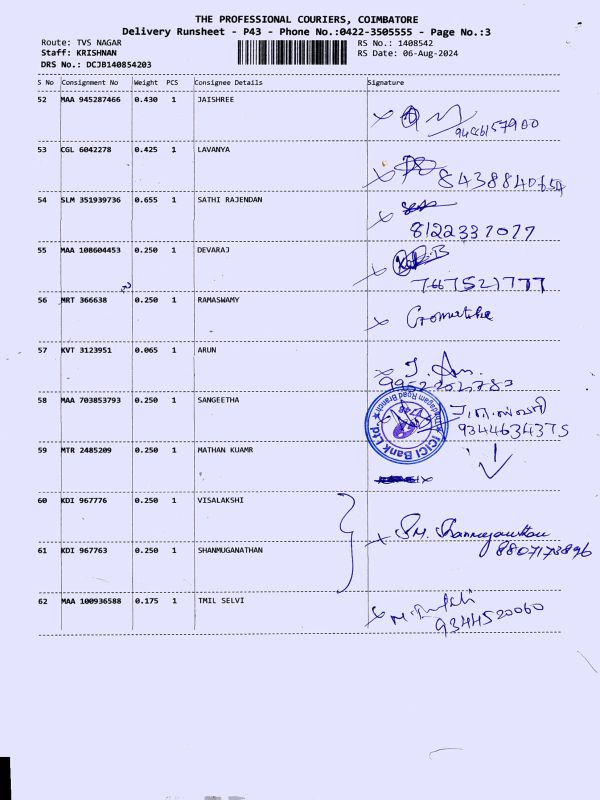 THE PROFESSIONAL COURIERS, COIMBATORE
Delivery Runsheet - P43 - Phone No.:0422-3505555 - Page No.:3
Route: TVS NAGAR RS No.: 1408542
Staff: KRISHNAN RS Date: 06-Aug-2024
DRS No.: DCJB140854203
S No Consignment No Weight PCS Consignee Details Signature
52 MAA 945287466 0.430 1 JAISHREE
53 CGL 6042278 0.425 1 LAVANYA
54 SLM 351939736 0.655 1 SATHI RAJENDAN
8122337077
55 MAA 108604453 0.250 1 DEVARAJ
7667521777
56 MRT 366638 0.250 1 RAMASWAMY
57 KVT 3123951 0.065 1 ARUN
58 MAA 703853793 0.250 1 SANGEETHA
9344634375
ICICI Bank Ltd
59 MTR 2485209 0.250 1 MATHAN KUAMR
60 KDI 967776 0.250 1 VISALAKSHI
61 KDI 967763 0.250 1 SHANMUGANATHAN
8807173896
62 MAA 100936588 0.175 1 TMIL SELVI
9344520060